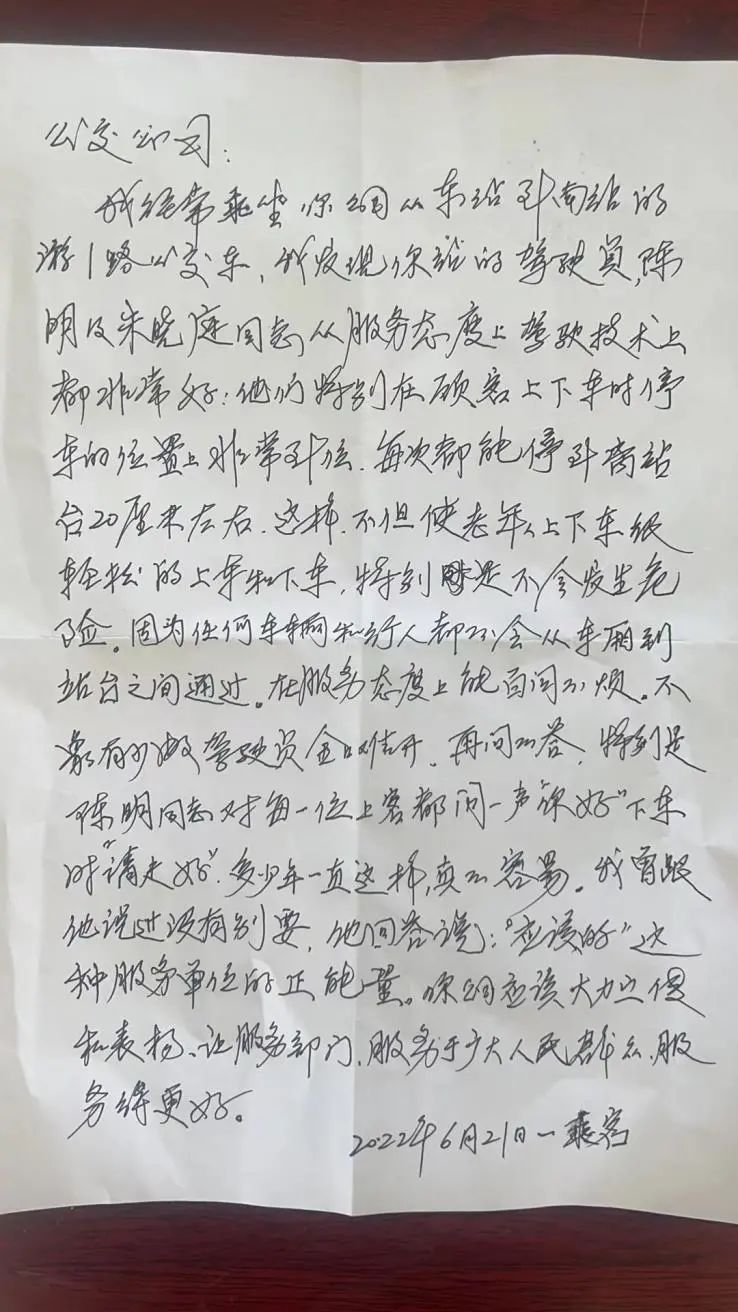 公交公司：
我经常乘坐你们从东站到南站的
游1路公交车，我发现你站的驾驶员，陈
明及朱晓庭同志，从服务态度上驾驶技术上
都非常好：他们特别在顾客上下车时停
车的位置上非常到位．每次都能停到离站
台20厘米左右．这样．不但使老年人上下车很
轻松的上车和下车，特别是不会发生危
险。因为任何车辆和行人都不会从车厢到
站台之间通过。在服务态度上能百问不烦。不
象有少数驾驶员金口难开．再问不答．特别是
陈明同志对每一位上客都问一声“你好”下车
时“请走好”．多少年一直这样，真不容易。我曾跟
他说过没有别要，他回答说：“应该的”这
种服务单位的正能量。你们应该大力宣传
和表扬、让服务部门．服务于广大人民群众．服
务得更好。
2022年6月21日一乘客